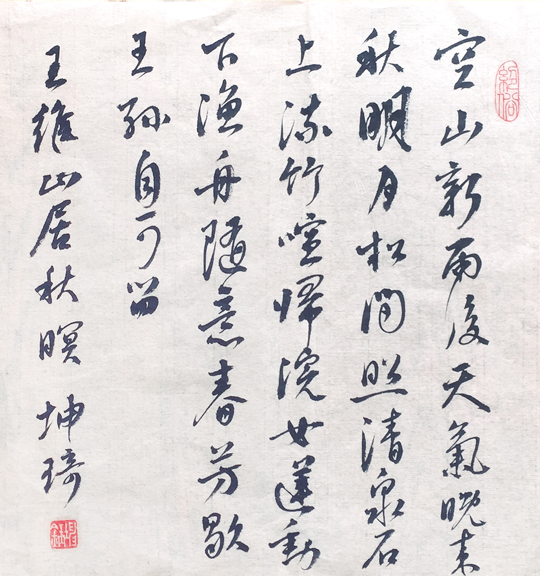 空山新雨後天氣晚来
秋明月松间照清泉石
上流竹喧歸浣女蓮動
下漁舟隨意春芳歇
王孫自可留
王維山居秋暝 坤琦